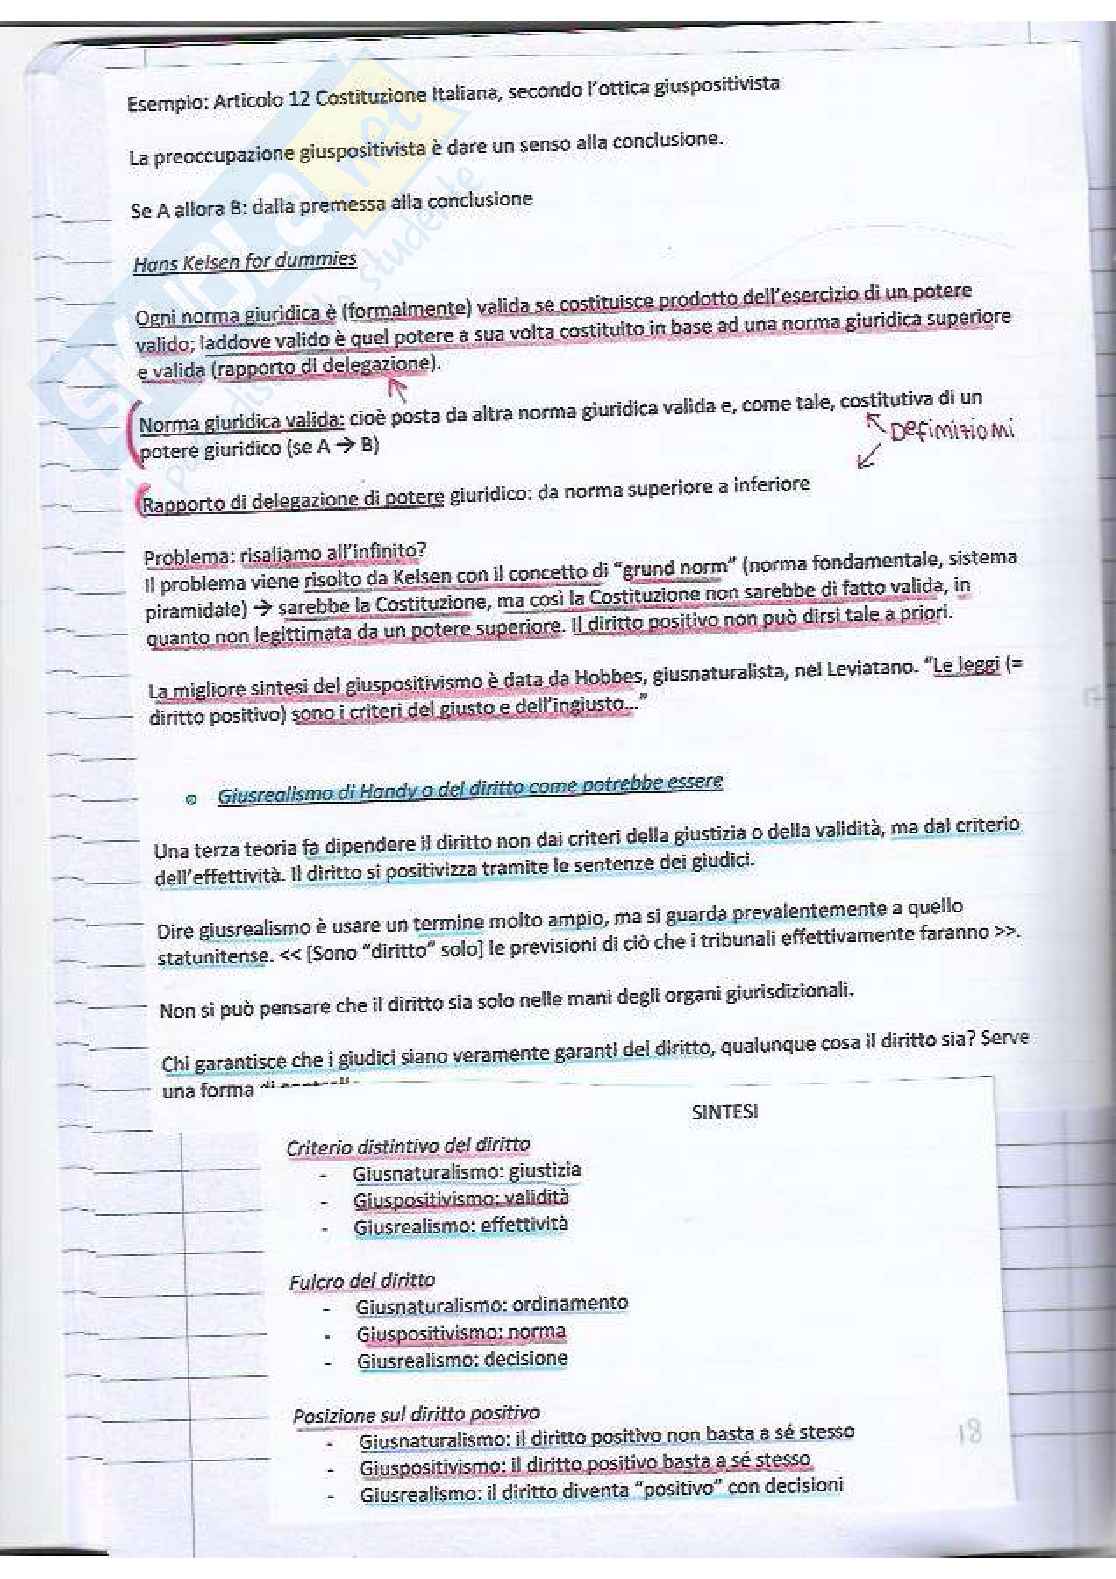 Esempio: Articolo 12 Costituzione Italiana, secondo l'ottica giuspositivista
La preoccupazione giuspositivista è dare un senso alla conclusione.
Se A allora B: dalla premessa alla conclusione
Hans Kelsen for dummies
Ogni norma giuridica è (formalmente) valida se costituisce prodotto dell'esercizio di un potere
valido; laddove valido è quel potere a sua volta costituito in base ad una norma giuridica superiore
e valida (rapporto di delegazione).
Norma giuridica valida: cioè posta da altra norma giuridica valida e, come tale, costitutiva di un
potere giuridico (se A → B)
Definizioni
Rapporto di delegazione di potere giuridico: da norma superiore a inferiore
Problema: risaliamo all'infinito?
Il problema viene risolto da Kelsen con il concetto di "grund norm" (norma fondamentale, sistema
piramidale) → sarebbe la Costituzione, ma così la Costituzione non sarebbe di fatto valida, in
quanto non legittimata da un potere superiore. Il diritto positivo non può dirsi tale a priori.
La migliore sintesi del giuspositivismo è data da Hobbes, giusnaturalista, nel Leviatano. "Le leggi (=
diritto positivo) sono i criteri del giusto e dell'ingiusto..."
Giusrealismo di Handy o del diritto come potrebbe essere
Una terza teoria fa dipendere il diritto non dai criteri della giustizia o della validità, ma dal criterio
dell'effettività. Il diritto si positivizza tramite le sentenze dei giudici.
Dire giusrealismo è usare un termine molto ampio, ma si guarda prevalentemente a quello
statunitense. << [Sono "diritto" solo] le previsioni di ciò che i tribunali effettivamente faranno >>.
Non si può pensare che il diritto sia solo nelle mani degli organi giurisdizionali.
Chi garantisce che i giudici siano veramente garanti del diritto, qualunque cosa il diritto sia? Serve
una forma
SINTESI
Criterio distintivo del diritto
- Giusnaturalismo: giustizia
- Giuspositivismo: validità
- Giusrealismo: effettività
Fulcro del diritto
- Giusnaturalismo: ordinamento
- Giuspositivismo: norma
- Giusrealismo: decisione
Posizione sul diritto positivo
- Giusnaturalismo: il diritto positivo non basta a sé stesso
- Giuspositivismo: il diritto positivo basta a sé stesso
- Giusrealismo: il diritto diventa "positivo" con decisioni
18